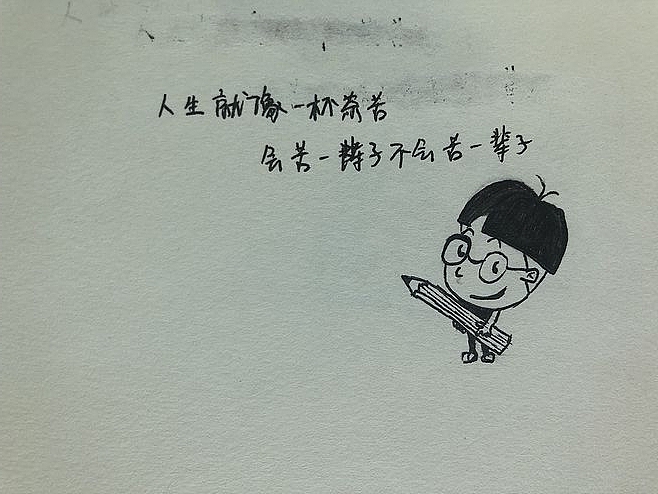 人生就像一杯茶苦
会苦一辈子不会苦一辈子